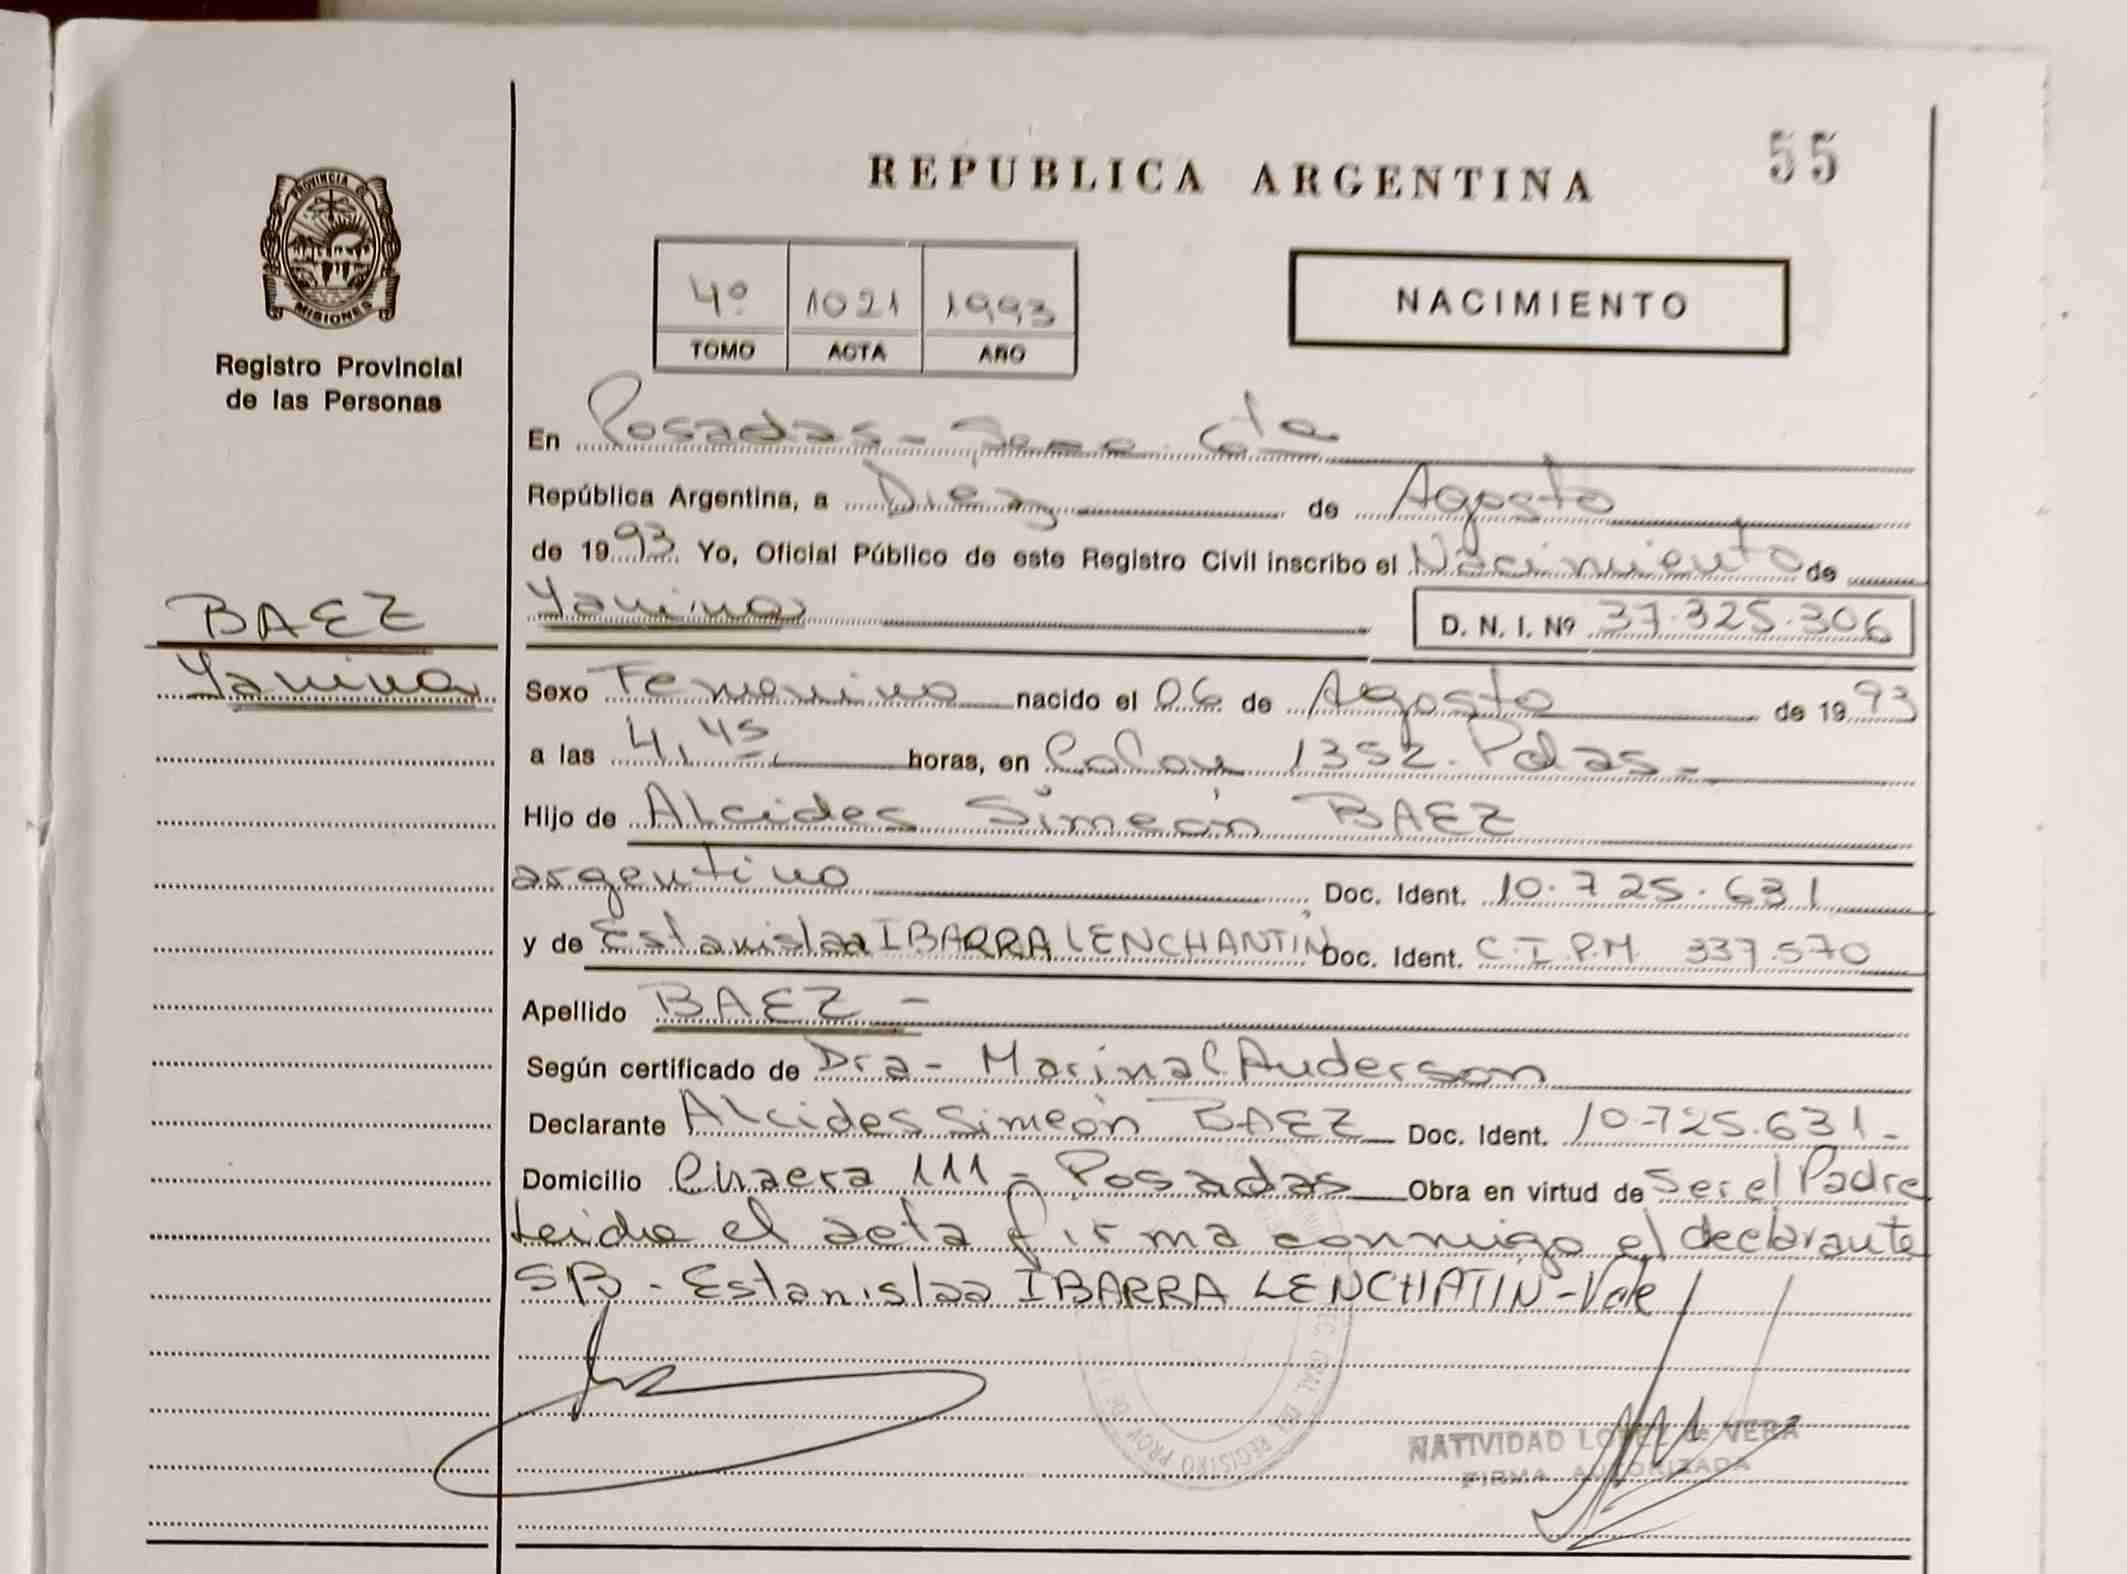 REPUBLICA ARGENTINA
55
PROVINCIA D
MISIONES
Registro Provincial
de las Personas
4º 1021 1993
TOMO ACTA AÑO
NACIMIENTO
En Posadas - Cta
República Argentina, a Diez de Agosto
de 1993 Yo, Oficial Público de este Registro Civil inscribo el Nacimiento de
Yanina D. N. I. Nº 37.325.306
BAEZ
Yanina
Sexo Femenino nacido el 06 de Agosto de 1993
a las 4,45 horas, en Colon 1352. Pdas -
Hijo de Alcides Simeón BAEZ
argentino Doc. Ident. 10.725.631
y de Estanislaa IBARRA LENCHANTIN Doc. Ident. C.I.P.M. 337.570
Apellido BAEZ -
Según certificado de Dra - Marina C. Anderson
Declarante Alcides Simeón BAEZ Doc. Ident. 10.725.631 -
Domicilio Chacra 111 - Posadas Obra en virtud de Ser el Padre
Leida el acta firma conmigo el declarante
SB - Estanislaa IBARRA LENCHATIN - Vale
NATIVIDAD LOPEZ de VERA
FIRMA AUTORIZADA